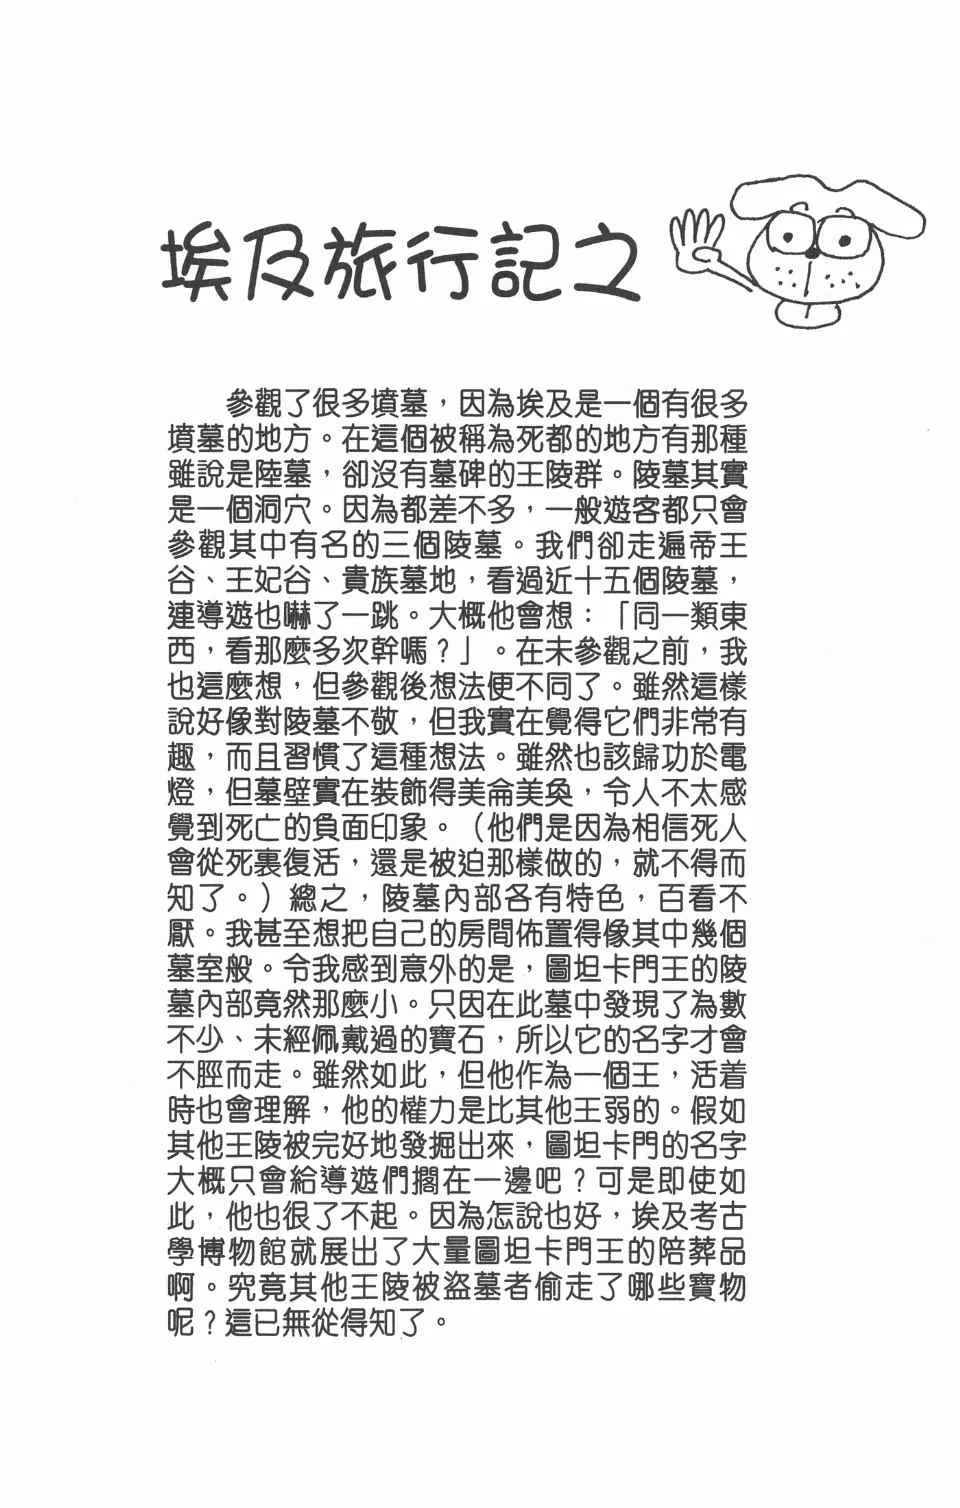 埃及旅行記之
參觀了很多墳墓，因為埃及是一個有很多
墳墓的地方。在這個被稱為死都的地方有那種
雖說是陸墓，卻沒有墓碑的王陵群。陵墓其實
是一個洞穴。因為都差不多，一般遊客都只會
參觀其中有名的三個陵墓。我們卻走遍帝王
谷、王妃谷、貴族墓地，看過近十五個陵墓，
連導遊也嚇了一跳。大概他會想：「同一類東
西，看那麼多次幹嗎？」。在未參觀之前，我
也這麼想，但參觀後想法便不同了。雖然這樣
說好像對陵墓不敬，但我實在覺得它們非常有
趣，而且習慣了這種想法。雖然也該歸功於電
燈，但墓壁實在裝飾得美侖美奐，令人不太感
覺到死亡的負面印象。（他們是因為相信死人
會從死裏復活，還是被迫那樣做的，就不得而
知了。）總之，陵墓內部各有特色，百看不
厭。我甚至想把自己的房間佈置得像其中幾個
墓室般。令我感到意外的是，圖坦卡門王的陵
墓內部竟然那麼小。只因在此墓中發現了為數
不少、未經佩戴過的寶石，所以它的名字才會
不脛而走。雖然如此，但他作為一個王，活着
時也會理解，他的權力是比其他王弱的。假如
其他王陵被完好地發掘出來，圖坦卡門的名字
大概只會給導遊們擱在一邊吧？可是即使如
此，他也很了不起。因為怎說也好，埃及考古
學博物館就展出了大量圖坦卡門王的陪葬品
啊。究竟其他王陵被盜墓者偷走了哪些寶物
呢？這已無從得知了。